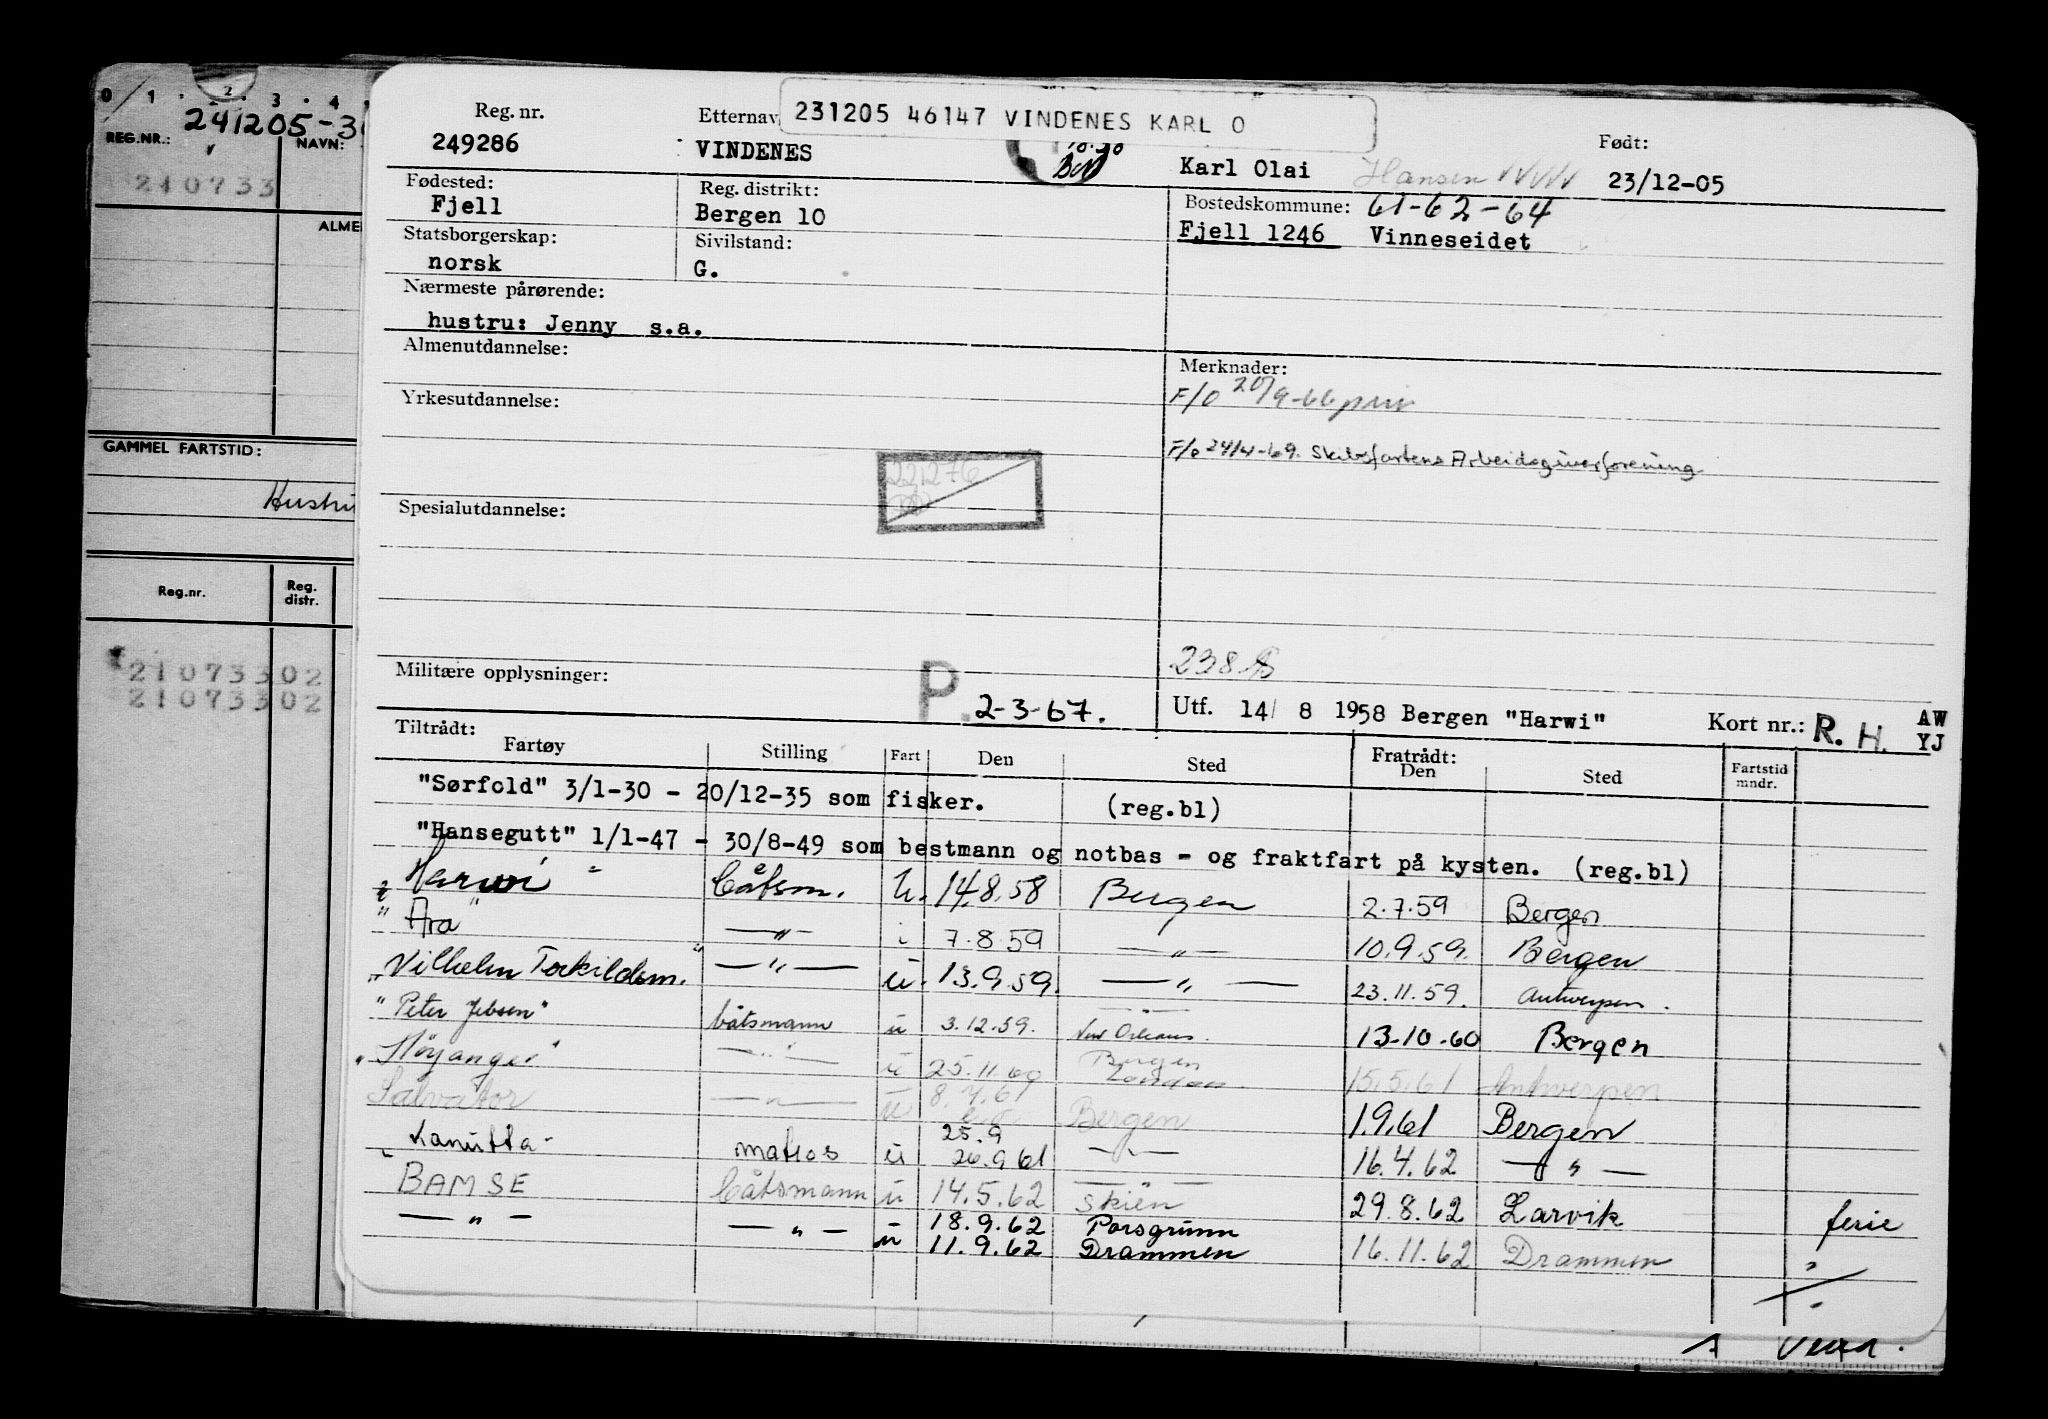 0 1 2 3 4
REG.NR.: 241205-3
NAVN:
210733
ALME
GAMMEL FARTSTID:
Hustru
Reg.nr. Reg. distr.
21073302
21073302
231205 46147 VINDENES KARL O
Reg. nr. Etternav Født:
249286 VINDENES Karl Olai Hansen 23/12-05
Fødested: Reg. distrikt: Bostedskommune: 61-62-64
Fjell Bergen 10 Fjell 1246 Vinneseidet
Statsborgerskap: Sivilstand:
norsk G.
Nærmeste pårørende:
hustru: Jenny s.a.
Almenutdannelse: Merknader:
F/o 20/9-66 priv
Yrkesutdannelse:
F/o 24/4-69. Skibsfartens Arbeidsgiverforening
221276
Spesialutdannelse:
238
Militære opplysninger: P. 2-3-67.
Utf. 14/ 8 1958 Bergen "Harwi" Kort nr.: R. H. AW YJ
Tiltrådt: Fratrådt:
Fartøy Stilling Fart Den Sted Den Sted Fartstid mndr.
"Sørfold" 3/1-30 - 20/12-35 som fisker. (reg.bl)
"Hansegutt" 1/1-47 - 30/8-49 som bestmann og notbas - og fraktfart på kysten. (reg.bl)
"Harwi" Båtsm. u. 14.8.58 Bergen 2.7.59 Bergen
"Ara" —"— i 7.8.59 —"— 10.9.59. Bergen
"Vilhelm Torkildsen." —"— u. 13.9.59. —"— 23.11.59. Antwerpen.
"Peter Jebsen" båtsmann u 3.12.59. New Orleans. 13-10-60 Bergen
"Høyanger" —"— u 25.11.60 Bergen 15.5.61 Antwerpen
London.
Salvator —"— u 8.7.61 Bergen 1.9.61 Bergen
25.9
Lanutta matros u 26.9.61 —"— 16.4.62 —"—
BAMSE Båtsmann u 14.5.62 Skien 29.8.62 Larvik ferie
—"— —"— u 18.9.62 Porsgrunn
u 11.9.62 Drammen 16.11.62 Drammen "